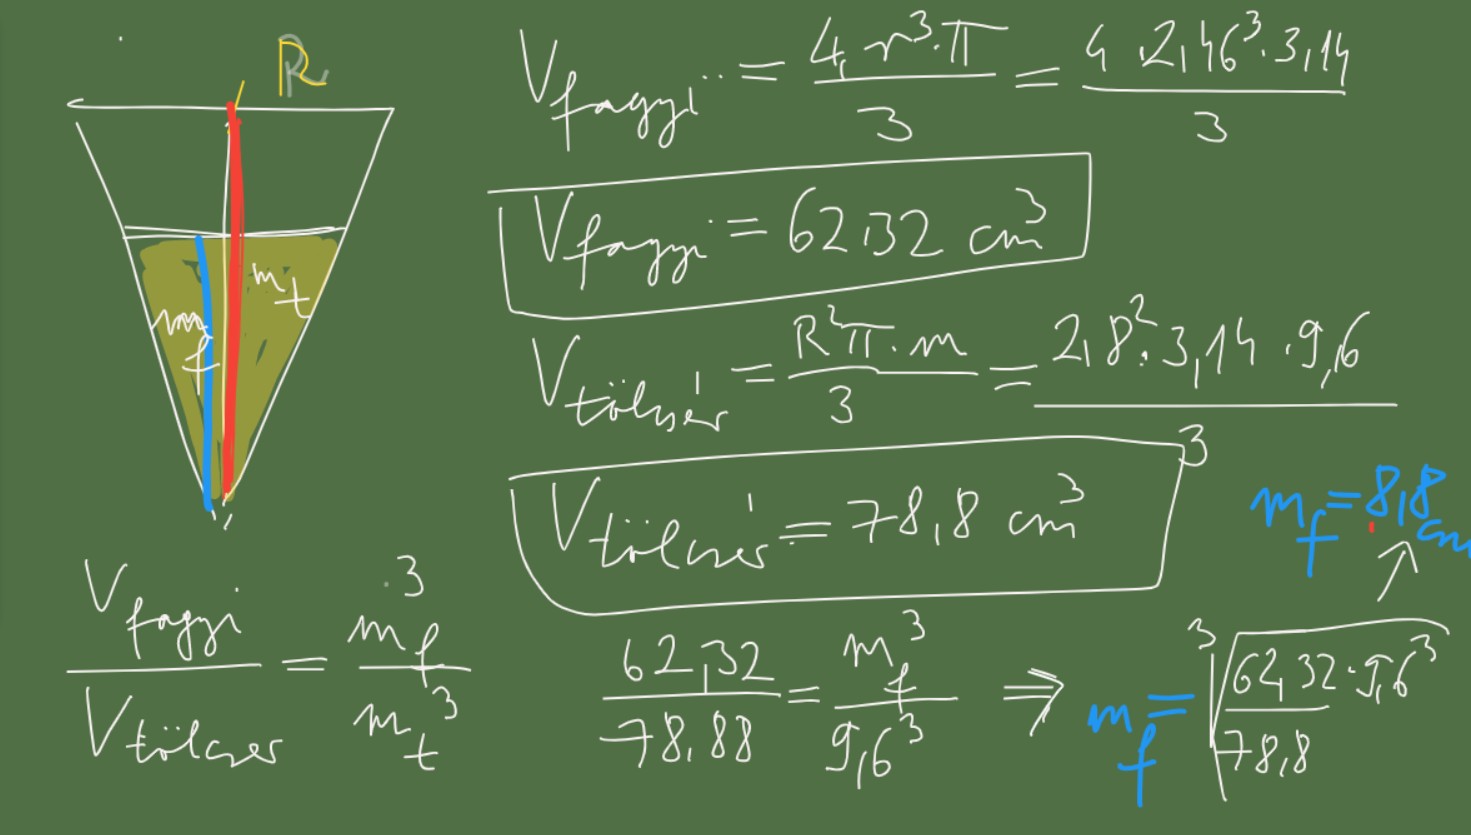 R
V fagyi = 4·r³·π / 3 = 4·2,46³·3,14 / 3
V fagyi = 62,32 cm³
V tölcsér = R²π·m / 3 = 2,8²·3,14·9,6 / 3
V tölcsér = 78,8 cm³
m_t
m_f
m_f = 8,8 cm
V fagyi / V tölcsér = m_f³ / m_t³
62,32 / 78,88 = m_f³ / 9,6³ ⇒ m_f = ∛(62,32·9,6³ / 78,8)